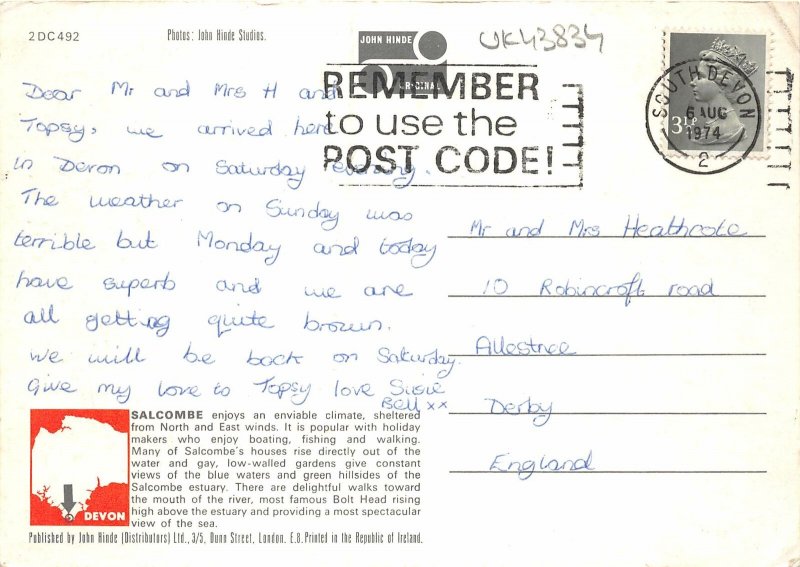 2DC492
Photos: John Hinde Studios.
JOHN HINDE
ORIGINAL
UK43834
REMEMBER
to use the
POST CODE!
SOUTH DEVON
6 AUG
1974
2
3½P
Dear Mr and Mrs H and
Topsy, we arrived here
in Devon on Saturday evening.
The weather on Sunday was
terrible but Monday and today
have superb and we are
all getting quite brown.
We will be back on Saturday.
Give my love to Topsy love Susie
Bell xx
Mr and Mrs Heathcote
10 Robincroft road
Allestree
Derby
England
DEVON
SALCOMBE enjoys an enviable climate, sheltered
from North and East winds. It is popular with holiday
makers who enjoy boating, fishing and walking.
Many of Salcombe's houses rise directly out of the
water and gay, low-walled gardens give constant
views of the blue waters and green hillsides of the
Salcombe estuary. There are delightful walks toward
the mouth of the river, most famous Bolt Head rising
high above the estuary and providing a most spectacular
view of the sea.
Published by John Hinde (Distributors) Ltd., 3/5, Dunn Street, London. E.8. Printed in the Republic of Ireland.